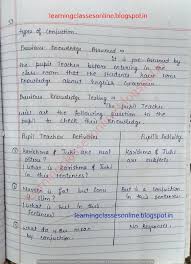 learningclassesonline.blogspot.in
Types of conjuction.
Previous Knowledge Assumed =
It is pre-assumed by
the pupil Teacher before entering in the
class room that the students have some
knowledge about English Grammar
Previous Knowledge Testing =
The pupil Teacher
will ask the following question to the
pupil to check their knowledge.
Pupil Teacher Activities
Pupil's Activity
① Karishma & Juhi are real
sisters?
What is Karishma & Juhi
in this sentence?
Karishma & Juhi
are subject
② Naveen is fat but
is slim?
What is but in this
sentence?
But is a conjuction
in this sentence
③ What do you mean
by conjuction
No Response.
learningclassesonline.blogspot.in